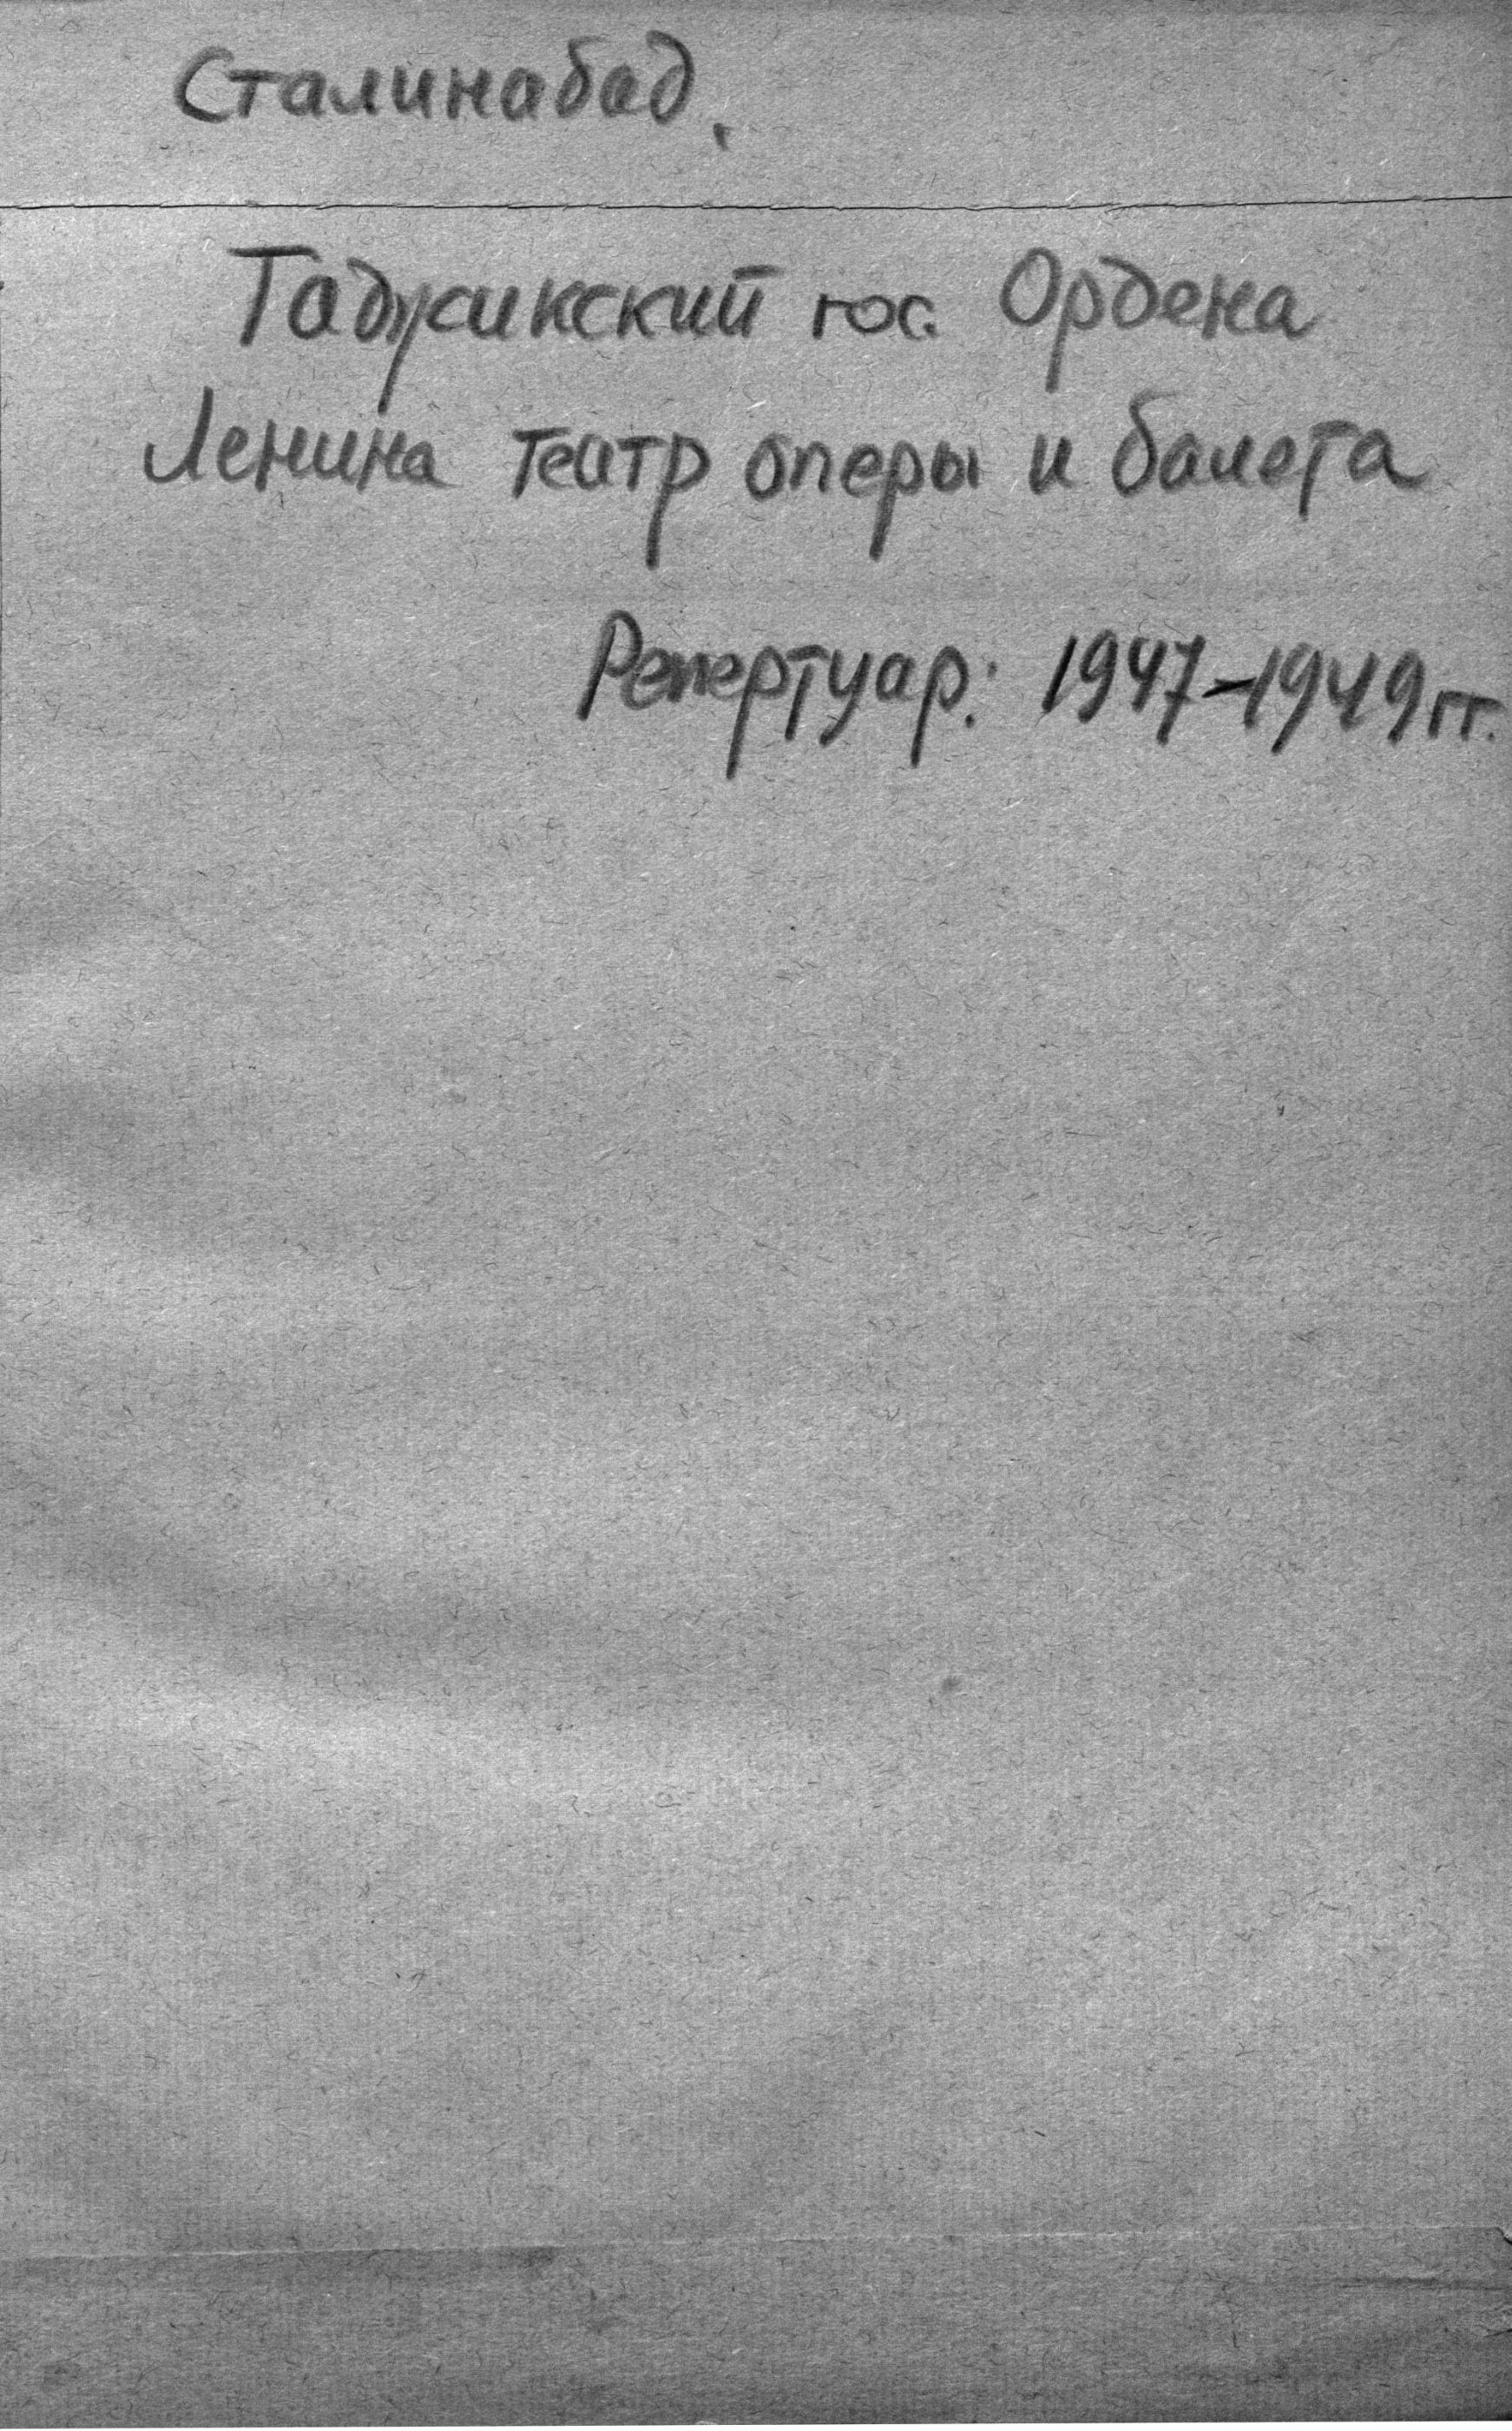 Сталинабад.
Таджикский гос. Ордена
Ленина театр оперы и балета
Репертуар: 1947-1949 гг.